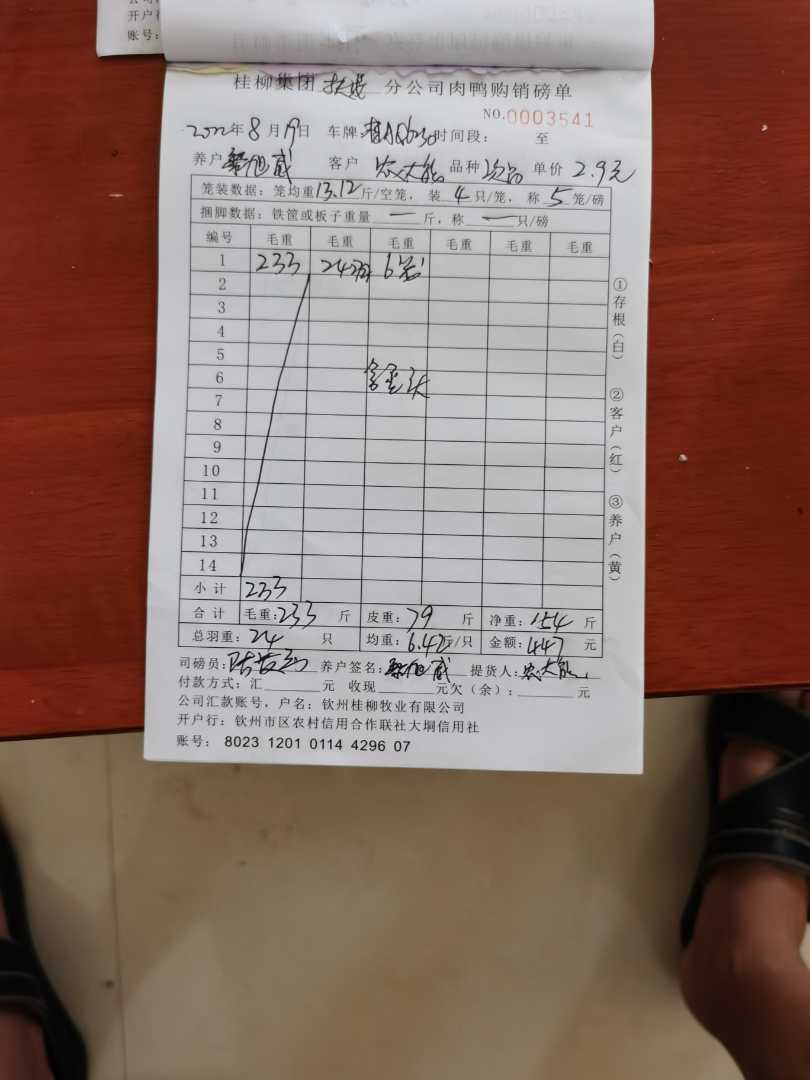 开户行
账号:
桂柳集团 扶绥 分公司肉鸭购销磅单
NO.0003541
2022年8月19日 车牌: 时间段: 至
养户 客户 农大能 品种 次品 单价 2.9元
笼装数据: 笼均重13.12斤/空笼, 装4只/笼, 称5笼/磅
捆脚数据: 铁筐或板子重量 一 斤, 称 一 只/磅
编号 毛重 毛重 毛重 毛重 毛重 毛重
1 233 24 6笼
2
3
4
5
6
7
8
9
10
11
12
13
14
小计 233
合计 毛重:233 斤 皮重:79 斤 净重:154 斤
总羽重:24 只 均重:6.42斤/只 金额:447 元
司磅员: 养户签名: 提货人:农大能
付款方式: 汇 元 收现 元欠(余): 元
公司汇款账号, 户名: 钦州桂柳牧业有限公司
开户行: 钦州市区农村信用合作联社大垌信用社
账号: 8023 1201 0114 4296 07
①存根(白)
②客户(红)
③养户(黄)